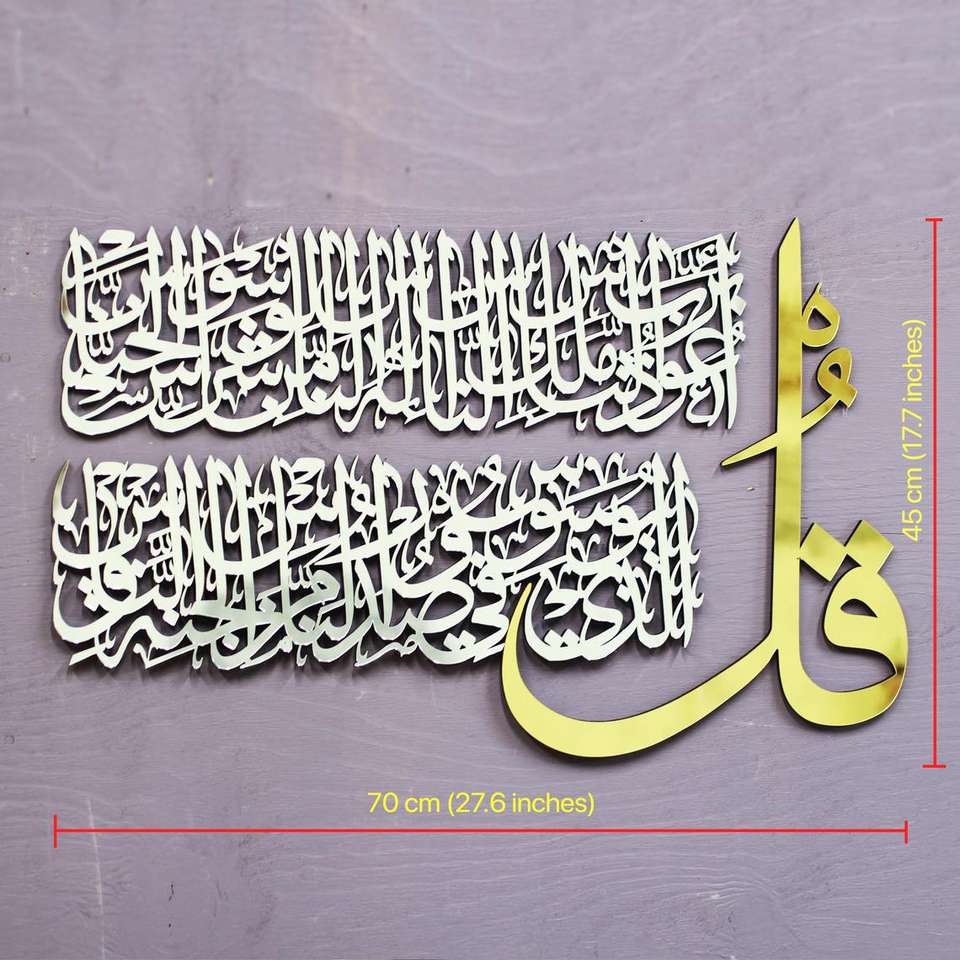 قُلْ
أَعُوذُ بِرَبِّ النَّاسِ مَلِكِ النَّاسِ إِلَهِ النَّاسِ مِنْ شَرِّ الْوَسْوَاسِ الْخَنَّاسِ
الَّذِي يُوَسْوِسُ فِي صُدُورِ النَّاسِ مِنَ الْجِنَّةِ وَالنَّاسِ
45 cm (17.7 inches)
70 cm (27.6 inches)